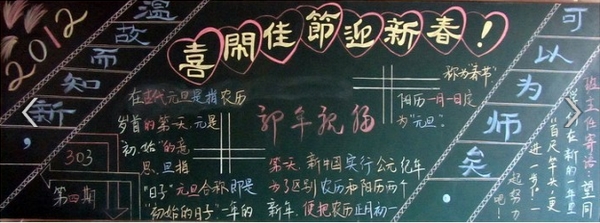 2012
温故而知新,
喜闹佳節迎新春!
可以为师矣
在古代元旦是指农历
岁首的第一天.元是
初.始"的意
思,旦指
"日子"元旦合称即是
"初始的日子"一年的
第一天.新中国实行公元纪年
为了区别农历和阳历两个
新年,便把农历正月初一
称为"春节"
阳历一月一日定
为"元旦".
新年祝福
303
第四期
班主任寄语:望同
学在新的一年里
"百尺竿头,更
进一步"
一起努
力吧!